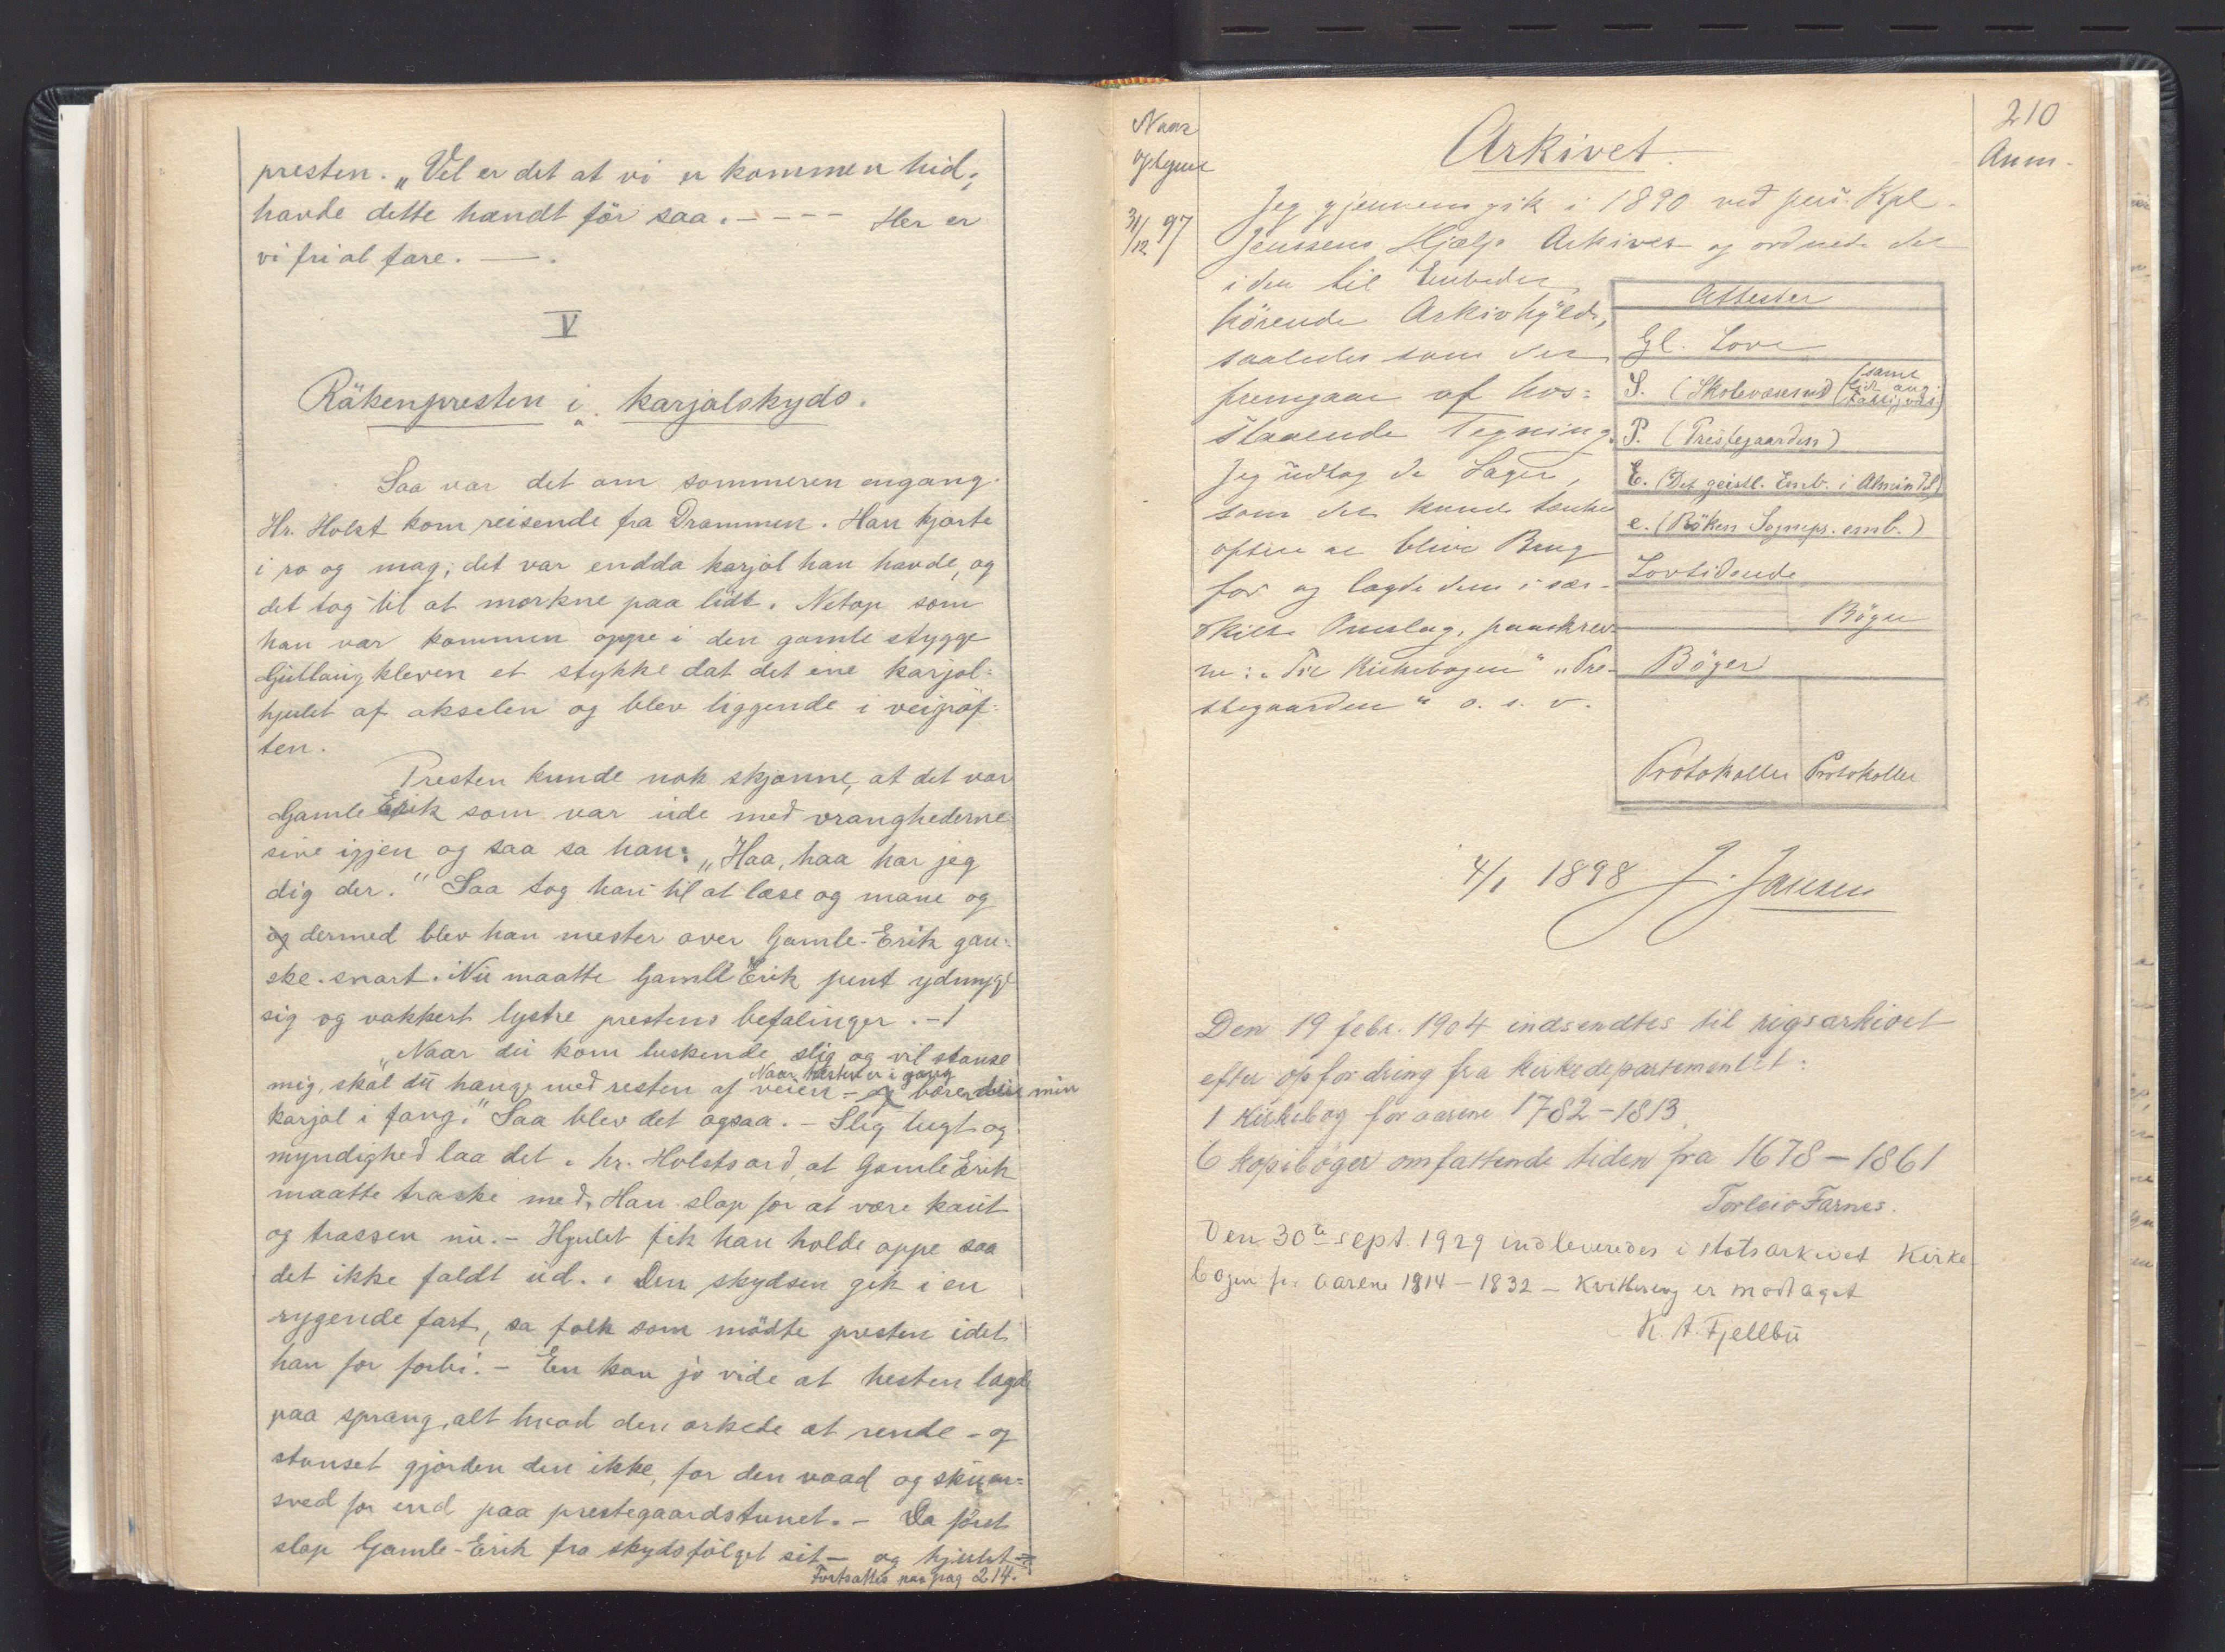 presten. „Vel er det at vi er kommen hid;
havde dette hændt för saa. - - - - Her er
vi fri al fare. —.
V
Räkenpresten i karjolskyds.
Saa var det om sommeren engang.
Hr. Holst kom reisende fra Drammen. Han kjørte
i ro og mag; det var endda karjol han havde, og
det tog til at mørkne paa lidt. Netop som
han var kommen oppe i den gamle stygge
Gullaugkleven et stykke dat det ene karjol-
hjulet af akselen og blev liggende i veigrøf-
ten.
Presten kunde nok skjønne, at det var
Gamle Erik som var ude med vranghederne
sine igjen og saa sa han: „Haa, haa har jeg
dig der." Saa tog han til at læse og mane og
og dermed blev han mester over Gamle-Erik gan-
ske snart. Nu maatte Gamle Erik pent ydmyge
sig og vakkert lystre prestens befalinger. -
„Naar du kom luskende slig og vil stanse
Naar hesten er i gang
mig, skal du hænge med resten af veien - og bære min
karjol i fang." Saa blev det ogsaa. - Slig tugt og
myndighed laa det i hr. Holsts ord, at Gamle Erik
maatte traske med. Han slap for at være kaut
og trassen nu. - Hjulet fik han holde oppe saa
det ikke faldt ud. Den skydsen gik i en
rygende fart, sa folk som mödte presten idet
han for forbi. - En kan jo vide at hesten lagde
paa sprang, alt hvad den orkede at rende - og
stanset gjorden den ikke, for den vaad og skum-
sved for ind paa prestegaardstunet. - Da först
slap Gamle-Erik fra skydsfølget sit - og hjulet
Fortsættes paa pag 214.
210
Naar
optegnet
Arkivet.
Anm.
31/12 97
Jeg gjennemgik i 1890 ved pers. Kpl.
Jenssens Hjælp Arkivet og ordnede det
i den til Embedet
hörende Arkivhylde,
saaledes som det
fremgaar af hos-
staaende Tegning.
Jeg udtog de Sager,
som det kunde tænkes
oftere at blive Brug
for og lagde dem i sær-
skilt Omslag, paaskrev-
ne: „Til Kirkebogen" „Pre-
stegaarden" o. s. v.
Attester
Gl. Love
S. (Skolevæsenet (samt
P. (Prestegaarden)
E. (Det geistl. Emb. i Almindel.)
e. (Röken Sognepr. emb.)
Lovtidende
Böger
Böger
Protokoller Protokoller
4/1 1898 J. Jansen
Den 19 febr. 1904 indsendtes til rigsarkivet
efter opfordring fra kirkedepartementet:
1 Kirkebog for aarene 1782-1813,
6 kopibøger omfattende tiden fra 1678-1861
Torleiv Farnes.
Den 30te sept. 1929 indleveredes i statsarkivet Kirke-
bogen for aarene 1814-1832 - Kvittering er modtaget
K. A. Fjellbu